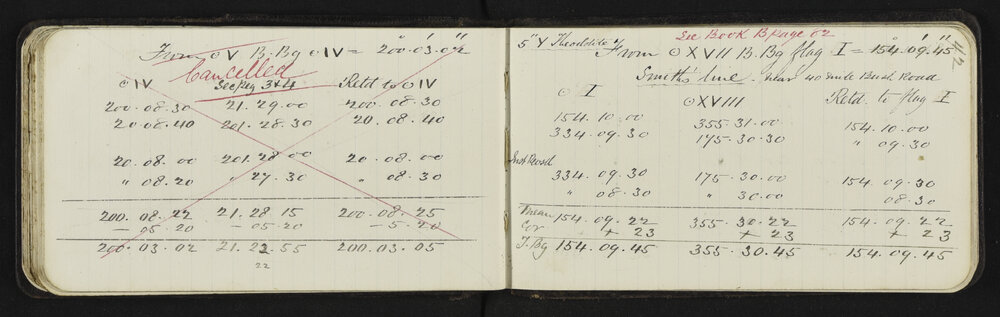 From ⊙V B.Bg ⊙IV = 200.03.02
Cancelled
⊙IV See Pag 3&4 Retd to ⊙IV
200.08.30 21.29.00 200.08.30
20.08.40 201.28.30 20.08.40
20.08.00 201.28.00 20.08.00
" 08.20 " 27.30 " 08.30
200.08.22 21.28.15 200.08.25
– 05.20 – 05.20 – 5.20
200.03.02 21.22.55 200.03.05
22
See Book B Page 02
42
5" Y Theodolite From ⊙XVII B.Bg flag I = 154°.09'.45"
Smith's line. near 40 mile Bush Road
⊙ I ⊙XVIII Retd. to flag I
154.10.00 355.31.00 154.10.00
334.09.30 175.30.30 " 09.30
Inst Revsd
334.09.30 175.30.00 154.09.30
" 08.30 " 30.00 08.30
Mean 154.09.22 355.30.22 154.09.22
Cor + 23 + 23 + 23
T.Bg 154.09.45 355.30.45 154.09.45